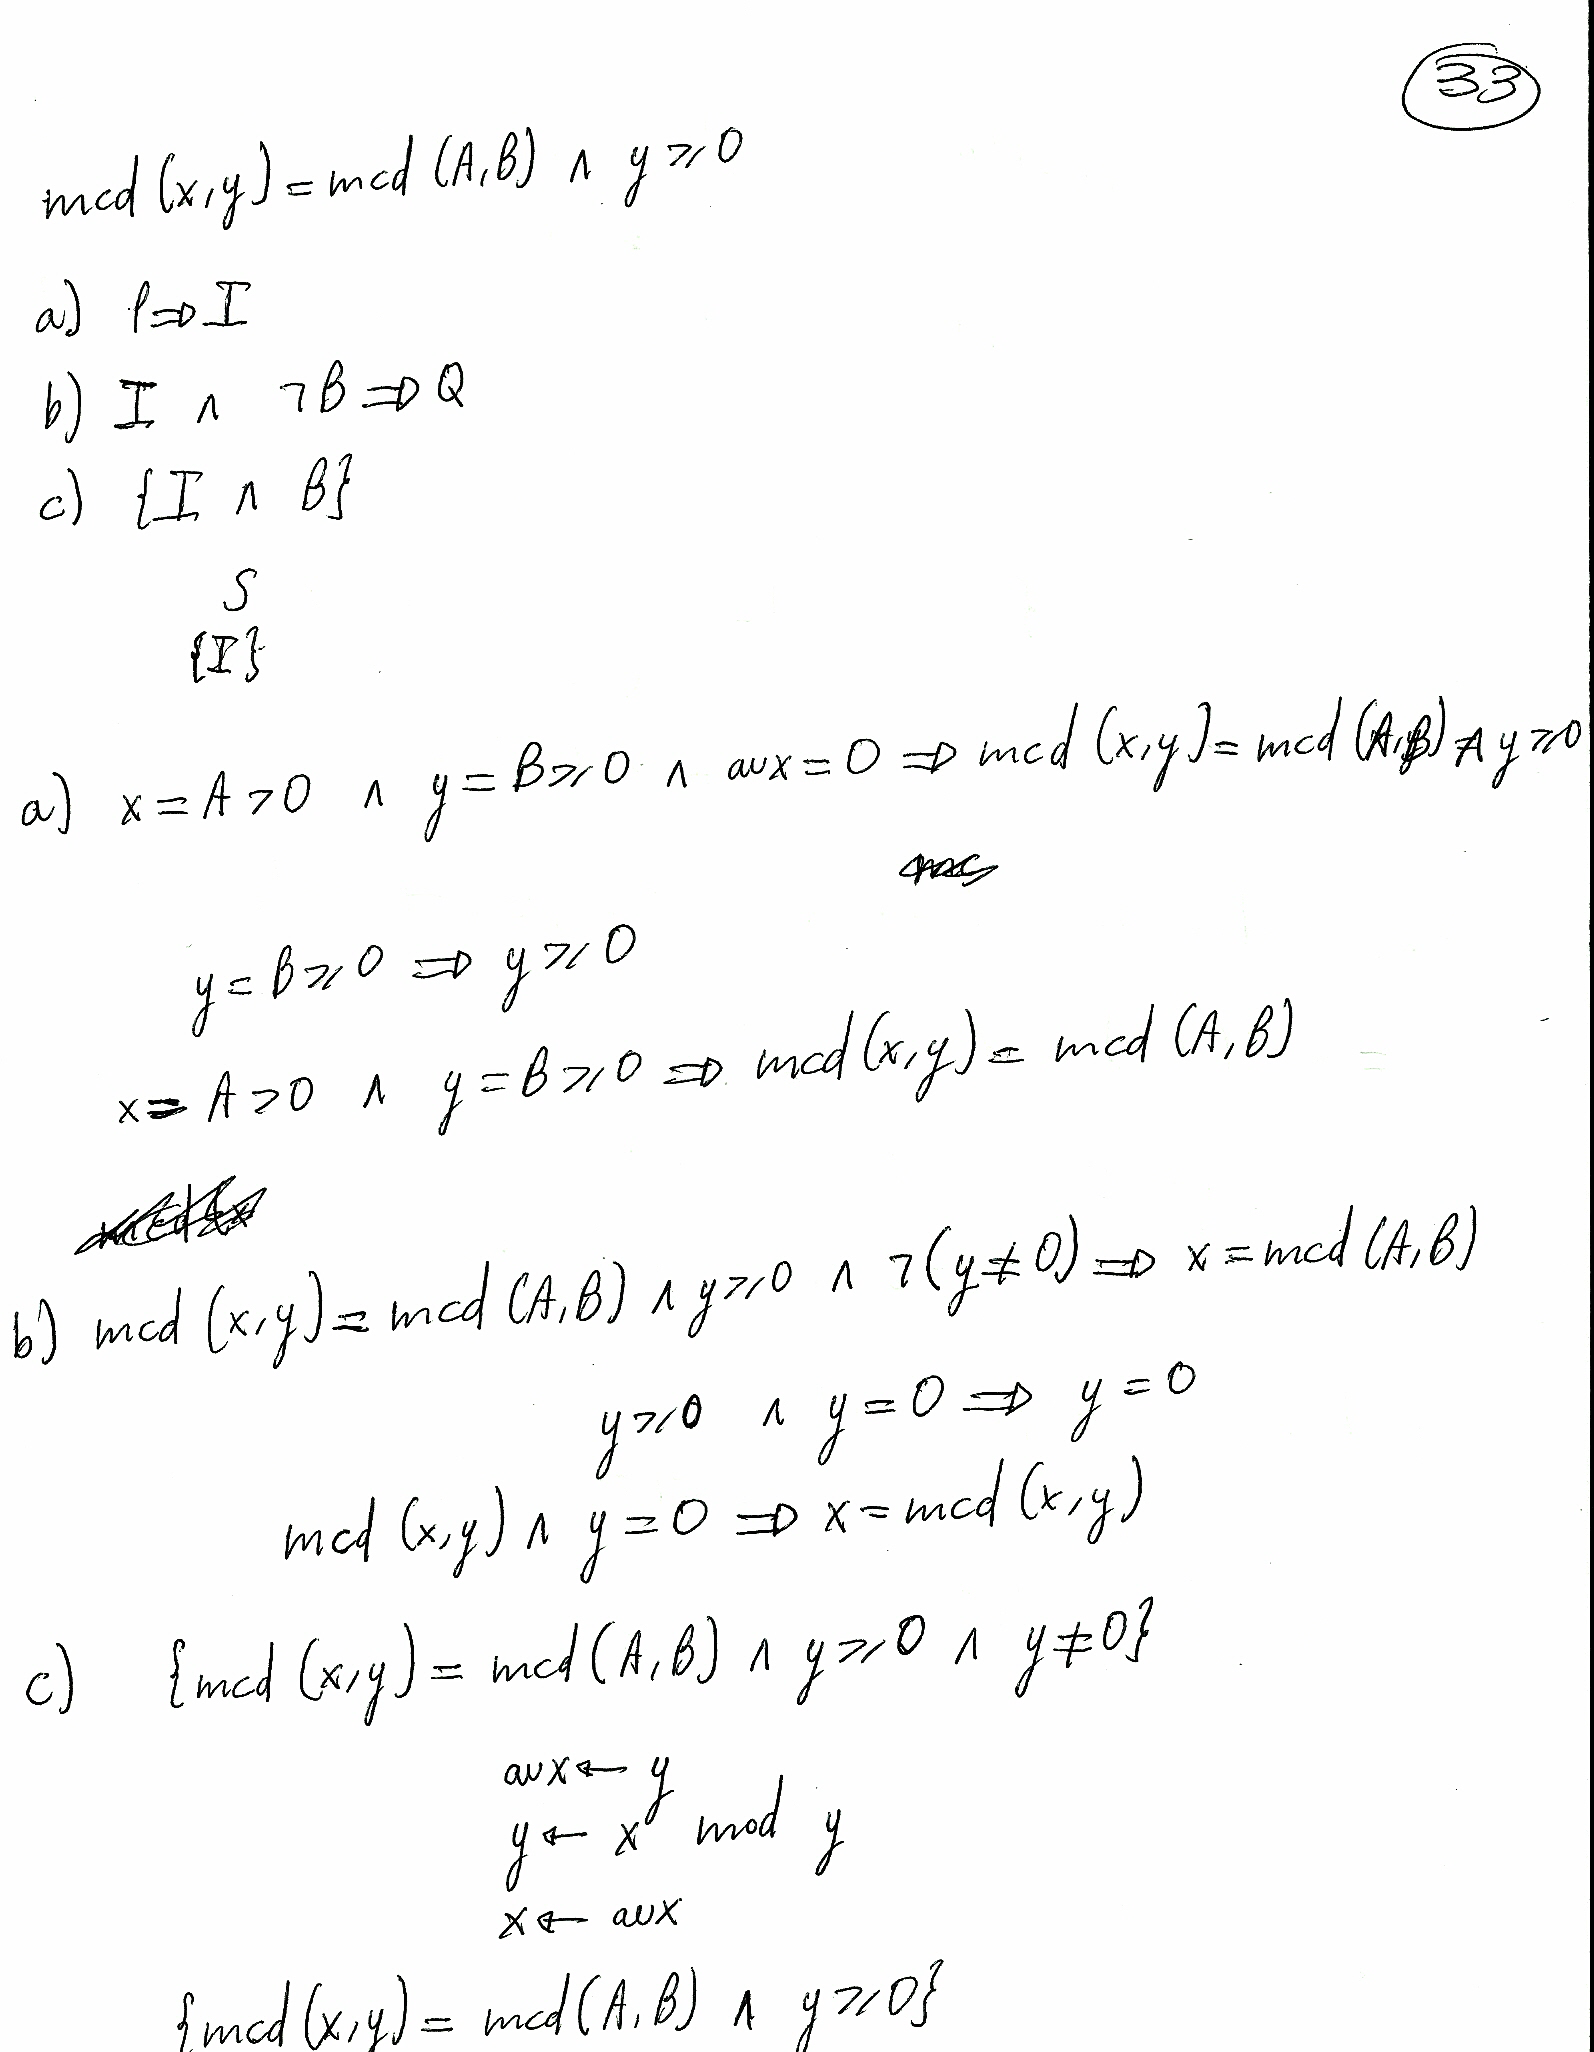 33
mcd (x,y) = mcd (A,B) ∧ y ≥ 0
a) P ⇒ I
b) I ∧ ¬B ⇒ Q
c) {I ∧ B}
S
{I}
a) x = A > 0 ∧ y = B ≥ 0 ∧ aux = 0 ⇒ mcd (x,y) = mcd (A,B) ∧ y ≥ 0
y = B ≥ 0 ⇒ y ≥ 0
x = A > 0 ∧ y = B ≥ 0 ⇒ mcd (x,y) = mcd (A,B)
b) mcd (x,y) = mcd (A,B) ∧ y ≥ 0 ∧ ¬(y ≠ 0) ⇒ x = mcd (A,B)
y ≥ 0 ∧ y = 0 ⇒ y = 0
mcd (x,y) ∧ y = 0 ⇒ x = mcd (x,y)
c) {mcd (x,y) = mcd (A,B) ∧ y ≥ 0 ∧ y ≠ 0}
aux ← y
y ← x mod y
x ← aux
{mcd (x,y) = mcd (A,B) ∧ y ≥ 0}